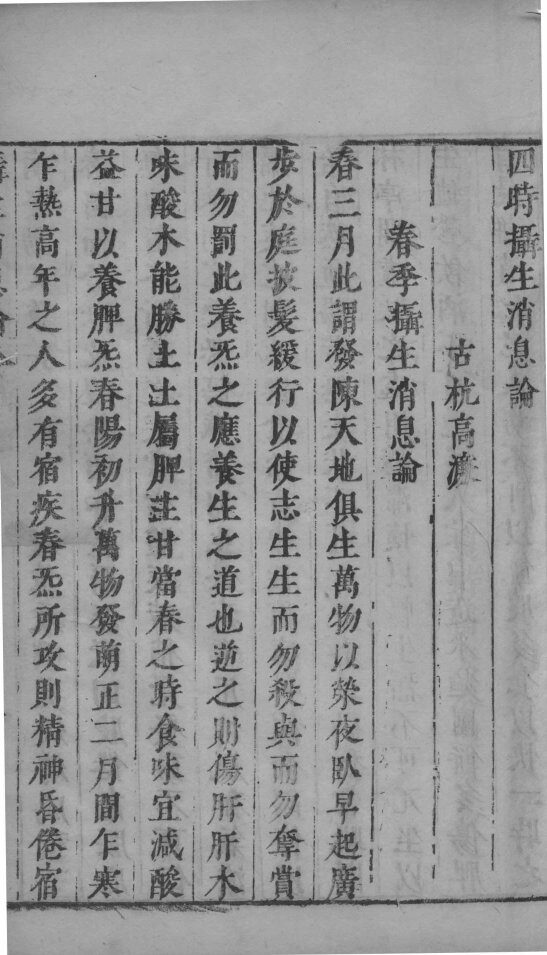 四時攝生消息論
古杭高濂
春季攝生消息論
春三月此謂發陳天地俱生萬物以榮夜臥早起廣
步於庭披髮緩行以使志生生而勿殺與而勿奪賞
而勿罰此養炁之應養生之道也逆之則傷肝肝木
味酸木能勝土土屬脾主甘當春之時食味宜減酸
益甘以養脾炁春陽初升萬物發萌正二月間乍寒
乍熱高年之人多有宿疾春炁所攻則精神昏倦宿